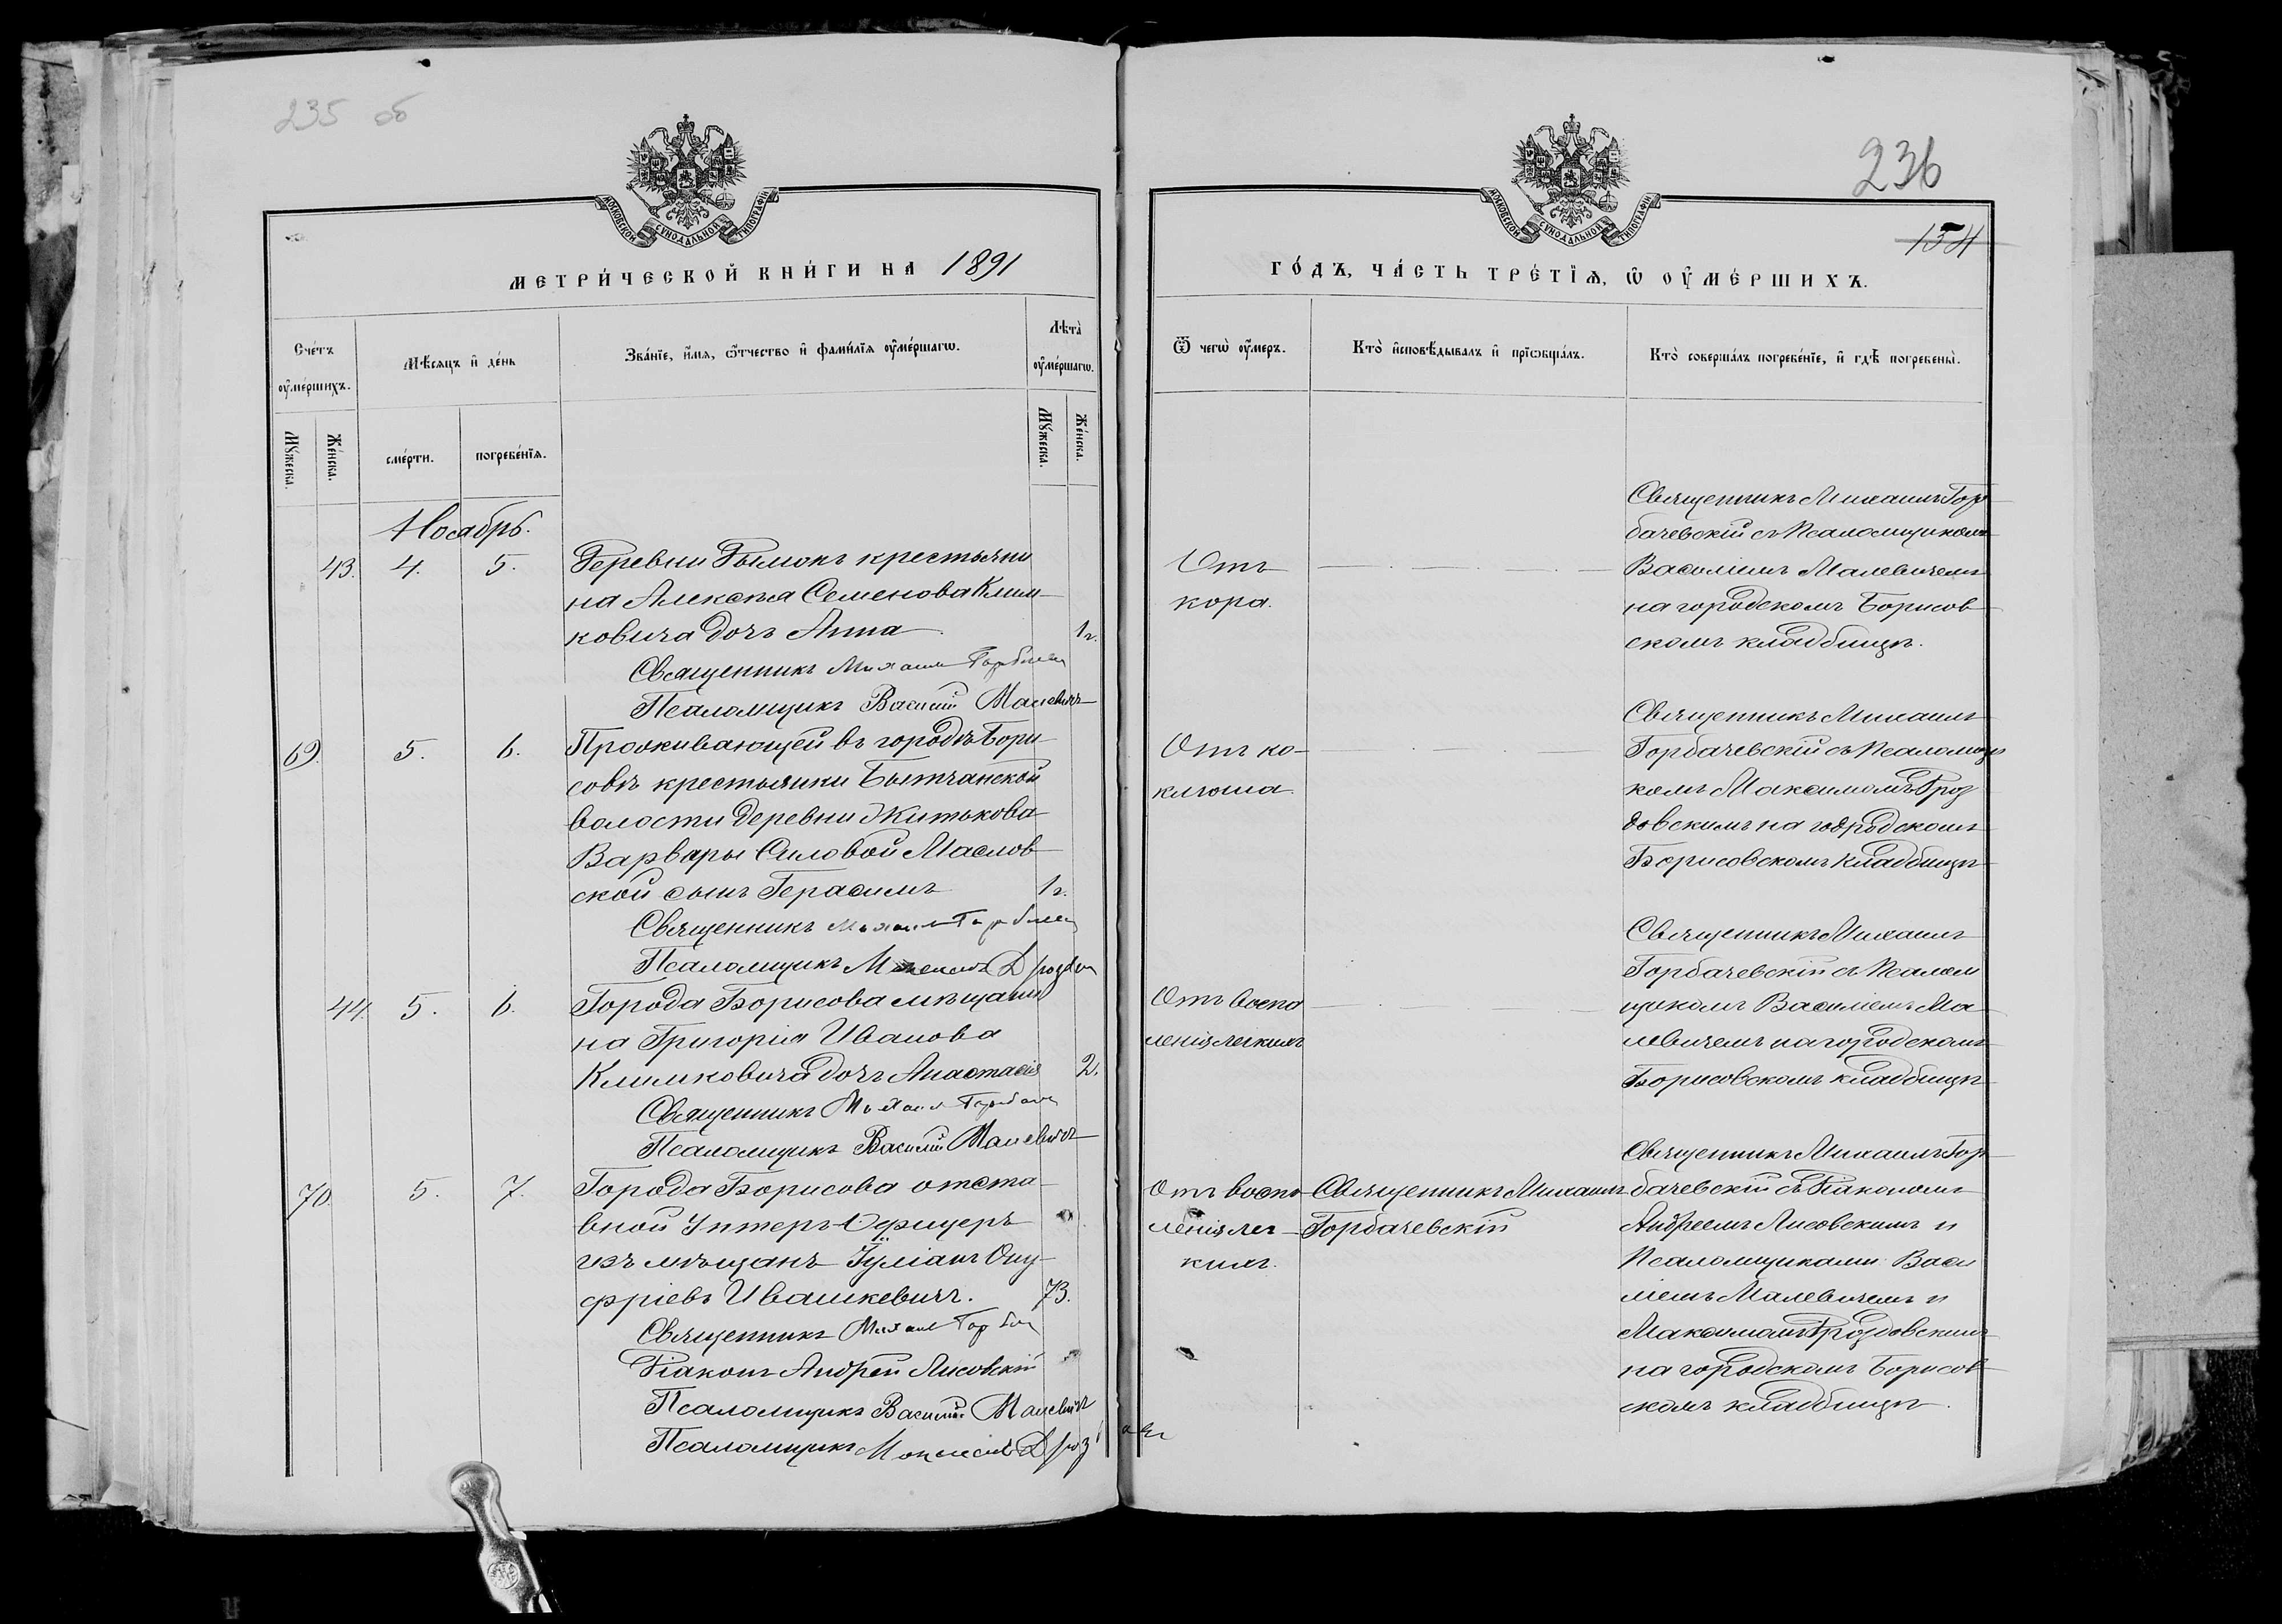 235 об
236
154
МОСКОВСКОЙ СУНОДАЛЬНОЙ ТИПОГРАФІИ
МОСКОВСКОЙ СУНОДАЛЬНОЙ ТИПОГРАФІИ
МЕТРИ́ЧЕСКОЙ КНИ́ГИ НА 1891
ГО́ДЪ, ЧА́СТЬ ТРЕ́ТЇѦ, Ѡ ОУ҆МЕ́РШИХЪ.
Сче́тъ оу҆ме́ршихъ.
Мꙋ́жеска.
Же́нска.
Мѣ́сѧцъ и҆ де́нь
сме́рти.
погребе́нїѧ.
Зва́нїе, и҆́мѧ, ѻ҆́тчество и҆ фами́лїѧ оу҆ме́ршагѡ.
Лѣта̀ оу҆ме́ршагѡ.
Мꙋ́жеска.
Же́нска.
Ѿ чегѡ̀ оу҆́меръ.
Кто̀ и҆сповѣ́дывалъ и҆ прїѡбща́лъ.
Кто̀ соверша́лъ погребе́нїе, и҆ гдѣ̀ погребены̀.
Ноябрь.
43. 4. 5.
Деревни Дымокъ крестьяни
на Алексѣя Семенова Клим
ковича дочь Анна 1 г.
Священникъ Михаилъ
Псаломщикъ Василій Малевичъ
Отъ
кора.
Священникъ Михаилъ Гор
бачевскій съ Псаломщикомъ
Василіемъ Малевичемъ
на городскомъ Борисов
скомъ кладбищѣ.
69. 5. 6.
Проживающей въ городѣ Бори
совѣ крестьянки Бытчанской
волости деревни Житькова
Варвары Силовой Маслов
ской сынъ Герасимъ 1 г.
Священникъ Михаилъ
Псаломщикъ
Отъ ко-
клюша.
Священникъ Михаилъ
Горбачевскій съ Псаломщи
комъ Максимомъ Дроз
довскимъ на городскомъ
Борисовскомъ кладбищѣ
44. 5. 6.
Города Борисова мѣщани
на Григорія Иванова
Климковича дочь Анастасія 2.
Священникъ Михаилъ
Псаломщикъ Василій Малевичъ
Отъ воспа
ленія легкихъ
Священникъ Михаилъ
Горбачевскій съ Псалом
щикомъ Василіемъ Ма
левичемъ на городскомъ
Борисовскомъ кладбищѣ
70. 5. 7.
Города Борисова отста
вной Унтеръ-Офицеръ
изъ мѣщанъ Іуліанъ Ону
фріевъ Ивашкевичъ. 73.
Священникъ Михаилъ
Діаконъ Андрей Лисовскій
Псаломщикъ Василій Малевичъ
Псаломщикъ
Отъ воспа
ленія лег
кихъ.
Священникъ Михаилъ
Горбачевскій
Священникъ Михаилъ Гор
бачевскій съ Діакономъ
Андреемъ Лисовскимъ и
Псаломщиками: Васи
ліемъ Малевичемъ и
Максимомъ Дроздовскимъ
на городскомъ Борисов
скомъ кладбищѣ.